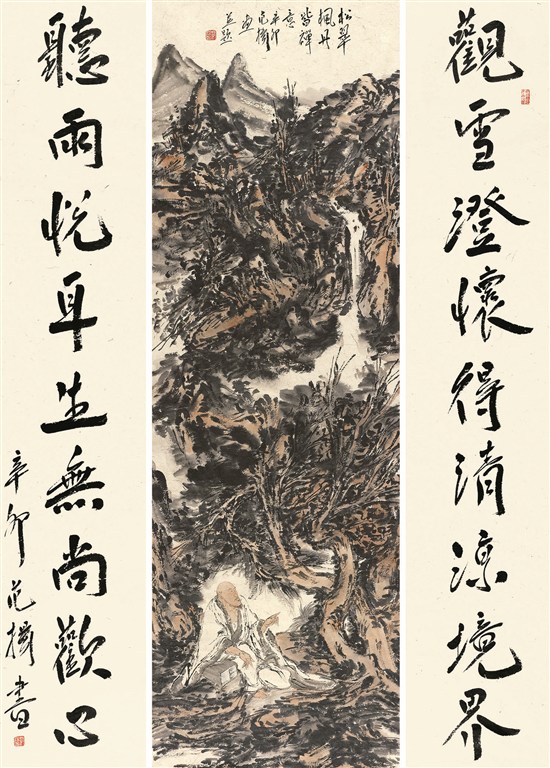 觀雪澄懷得清涼境界
松翠
楓丹
皆禪
意
辛卯
范揚
畫
並題
聽雨悅耳生無尚歡心
辛卯范揚書